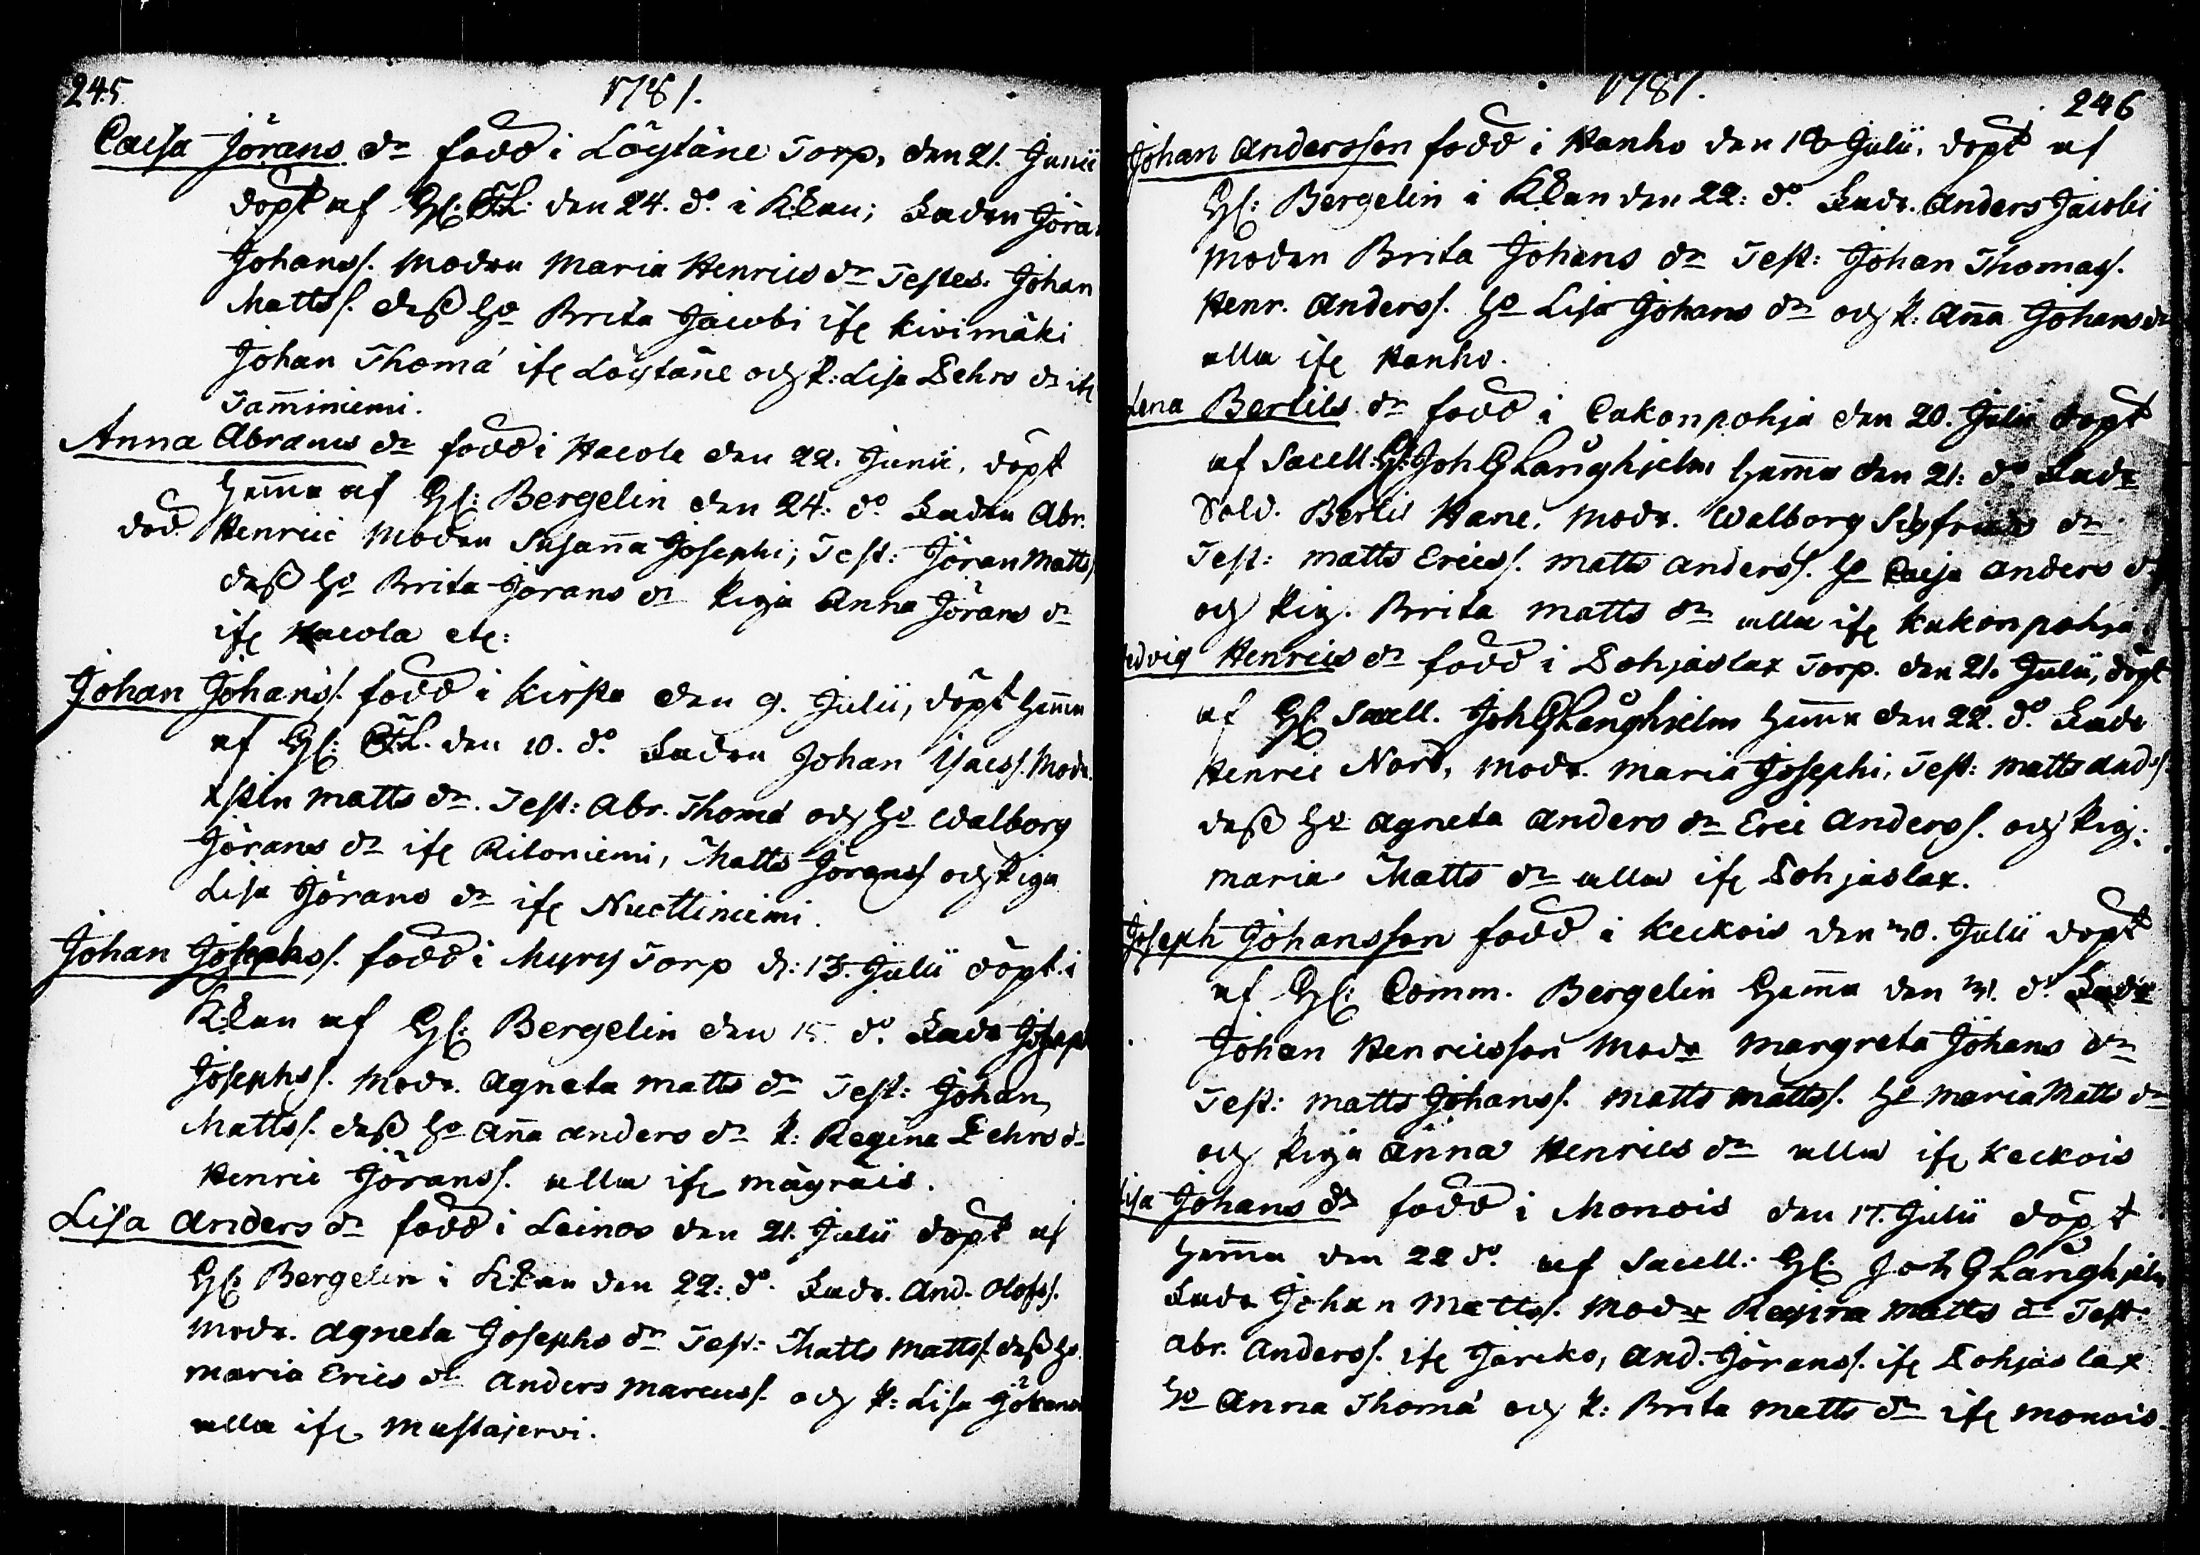 245.
1781.
Caisa Jörans dr född i Löytäne Torp, den 21. Junii
döpt af H: den 24. do i K:kan; Fadren Jöran
Johanss. Modren Maria Henrics dr Testes. Johan
Mattss. dess ho Brita Jacobi ifr Kivimäki
Johan Thomæ ifr Löytäne och p: Lisa Pehrs dr ifr
Tam̄iniemi.
Anna Abrams dr född i Hacola den 22. Junii, döpt
hem̄a af H: Bergelin den 24: do Fadren Abr.
död. Henrici Modren Susan̄a Josephi; Test: Jöran Matts
dess ho Brita Jörans dr Piga Anna Jörans dr
ifr Hacola etc:
Johan Johans. född i Kirsta den 9. Julii, döpt hem̄a
af H: den 10. do Fadren Johan Isacs. Modr.
Kstin Matts dr. Test: Abr. Thomæ och ho Walborg
Jörans dr ifr Ritoniemi, Matts Jöranss och Piga
Lisa Jörans dr ifr Nuottiniemi.
Johan Josephss. född i Myry Torp d: 13. Julii döpt i
K:kan af H: Bergelin den 15. do Fadr Joseph
Josephss. Modr. Agneta Matts dr Test: Johan
Mattss. dess ho An̄a Anders dr P: Regina Pehrs dr
Henric Jöranss. alla ifr Mägräis.
Lisa Anders dr född i Leinos den 21. Julii döpt af
H: Bergelin i K:kan den 22: do. Fadr. And. Olofss.
Modr. Agneta Josephs dr Test: Matts Mattss. dess ho
Maria Erics dr Anders Marcuss. och P: Lisa Johans
alla ifr Mustajervi.
1781.
246
Johan Andersson född i Hanho den 18 Julii. döpt af
H: Bergelin i K:kan den 22: do Fadr. Anders Jacobi
Modren Brita Johans dr Test: Johan Thomass.
Henr. Anderss. ho Lisa Johans dr och P: An̄a Johans dr
alla ifr Hanho.
Lena Bertils dr född i Cakonpohja den 20. Julii döpt
af Sacell: H: Joh G Langhjelm hem̄a den 21: do Fadr
Sold. Bertil Hane, Modr. Walborg Sigfrids dr
Test: Matts Ericss. Matts Anderss. ho Caisa Anders dr
och Pig. Brita Matts dr alla ifr Kakonpohja
edvig Henrics dr född i Pohjaslax Torp. den 21. Julii, döpt
af H: Sacell. Joh G Langhjelm hem̄a den 22. do Fadr
Henric Nord, Modr. Maria Josephi, Test: Matts And.s
dess ho Agneta Anders dr Eric Anderss. och Pig.
Maria Matts dr alla ifr Pohjaslax.
Joseph Johansson född i Keckois den 30. Julii döpt
af H: Comm. Bergelin Hem̄a den 31. do Fadr
Johan Henricsson Modr Margreta Johans dr
Test: Matts Johanss. Matts Mattss. ho Maria Matts dr
och Piga Anna Henrics dr alla ifr Keckois
Lisa Johans dr född i Monois den 17. Julii döpt
hem̄a den 22 do. af Sacell: H: Joh G Langhjelm
Fadr Johan Mattss. Modr Regina Matts dr Test:
Abr. Anderss. ifr Jereko, And. Jöranss. ifr Pohjaslax
ho Anna Thomæ och P: Brita Matts dr ifr Monois.